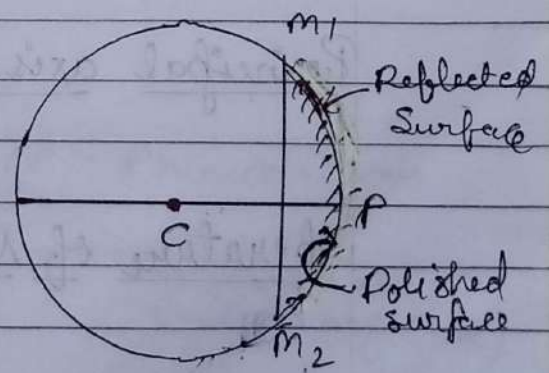 M1
Reflected
Surface
C
P
Polished
surface
M2